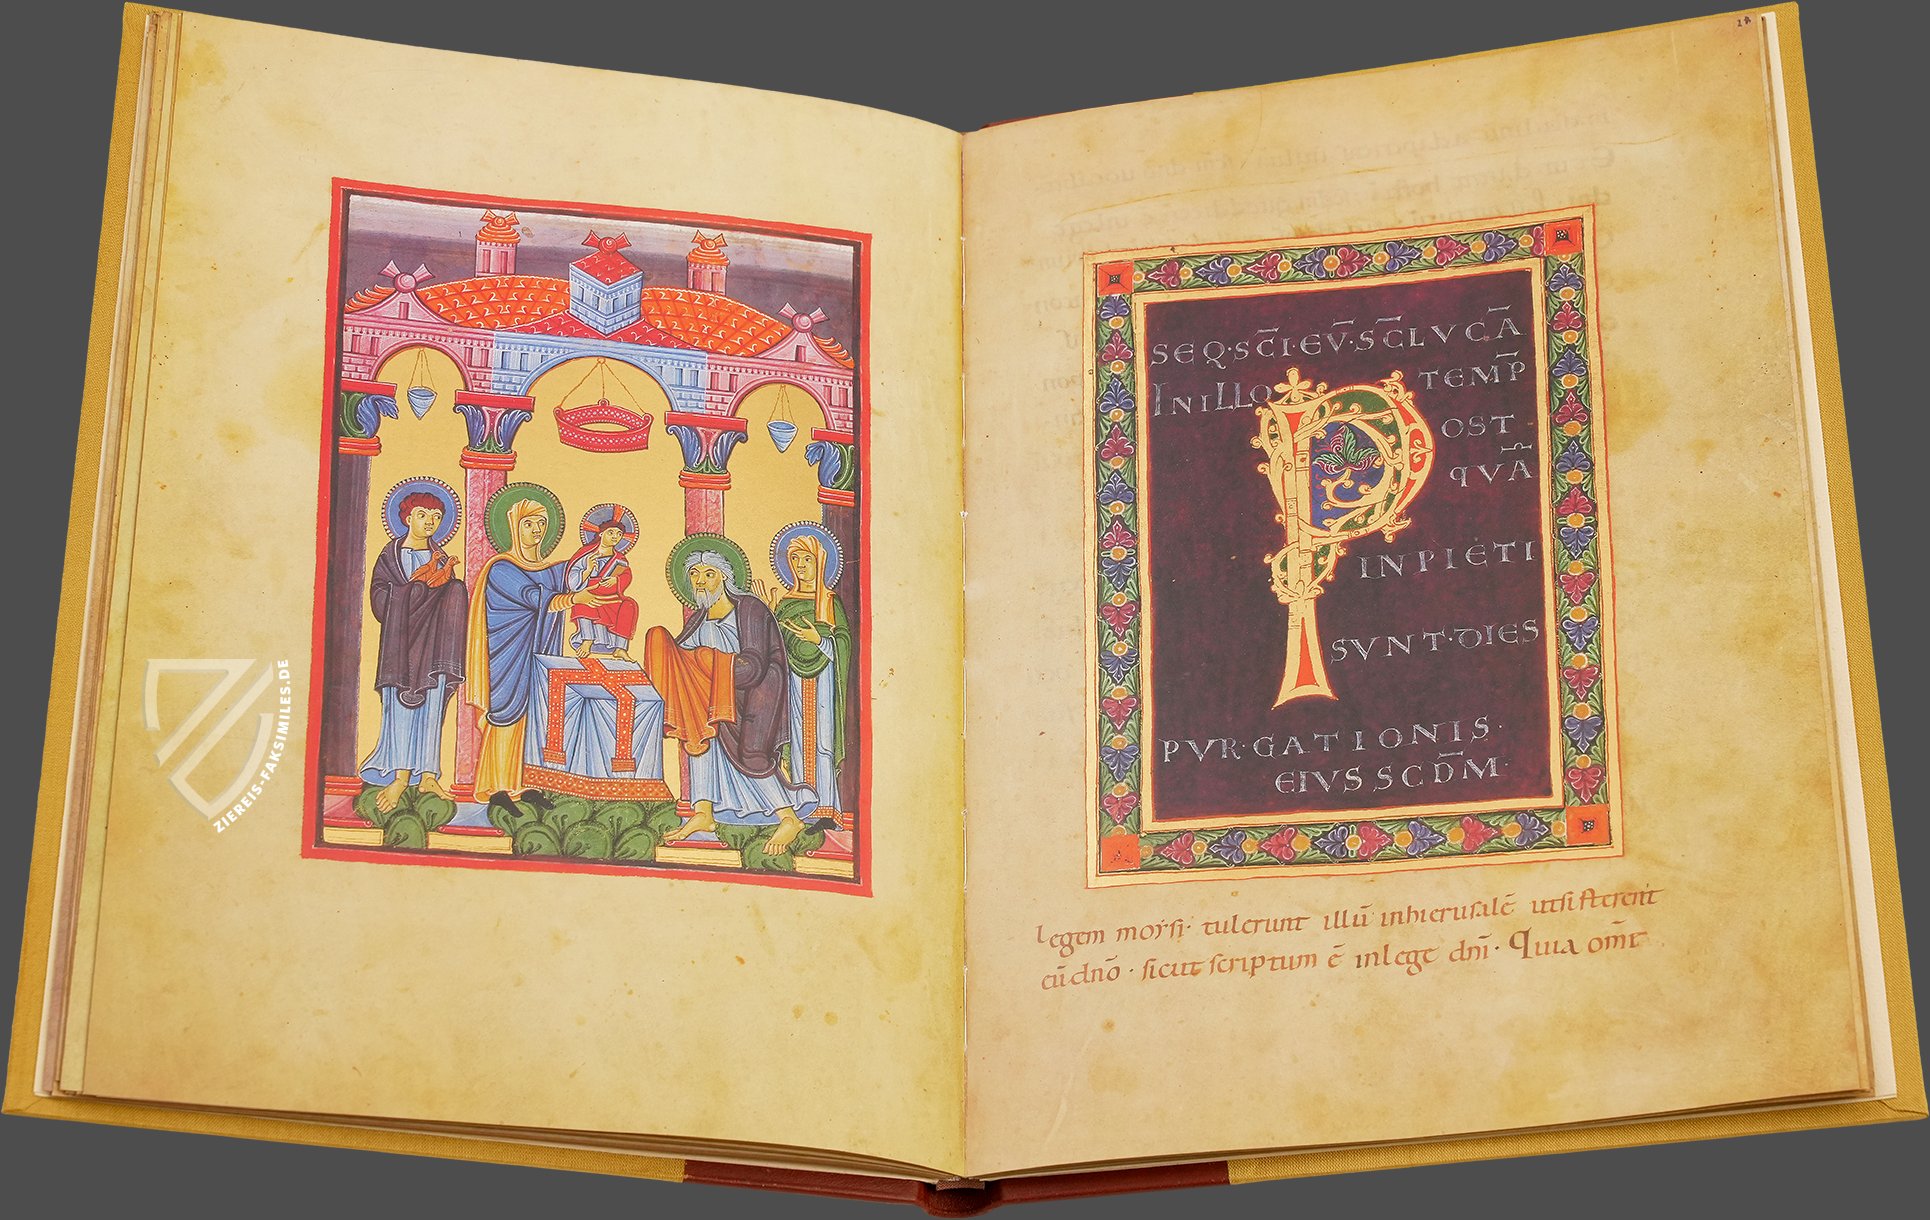 ZIEREIS-FAKSIMILES.DE
SEQ·SC̄I·EV̄·SC̄LVCĀ
INILLO TEMP̄
POST
QVĀ
INPLETI
SVNT·DIES
PVR·GATIONIS·
EIVS SCD̄M·
legem moysi· tulerunt illū inhierusalē utsisterent
eū·dnō· sicut scriptum ē inlege dnī· Quia om̄e